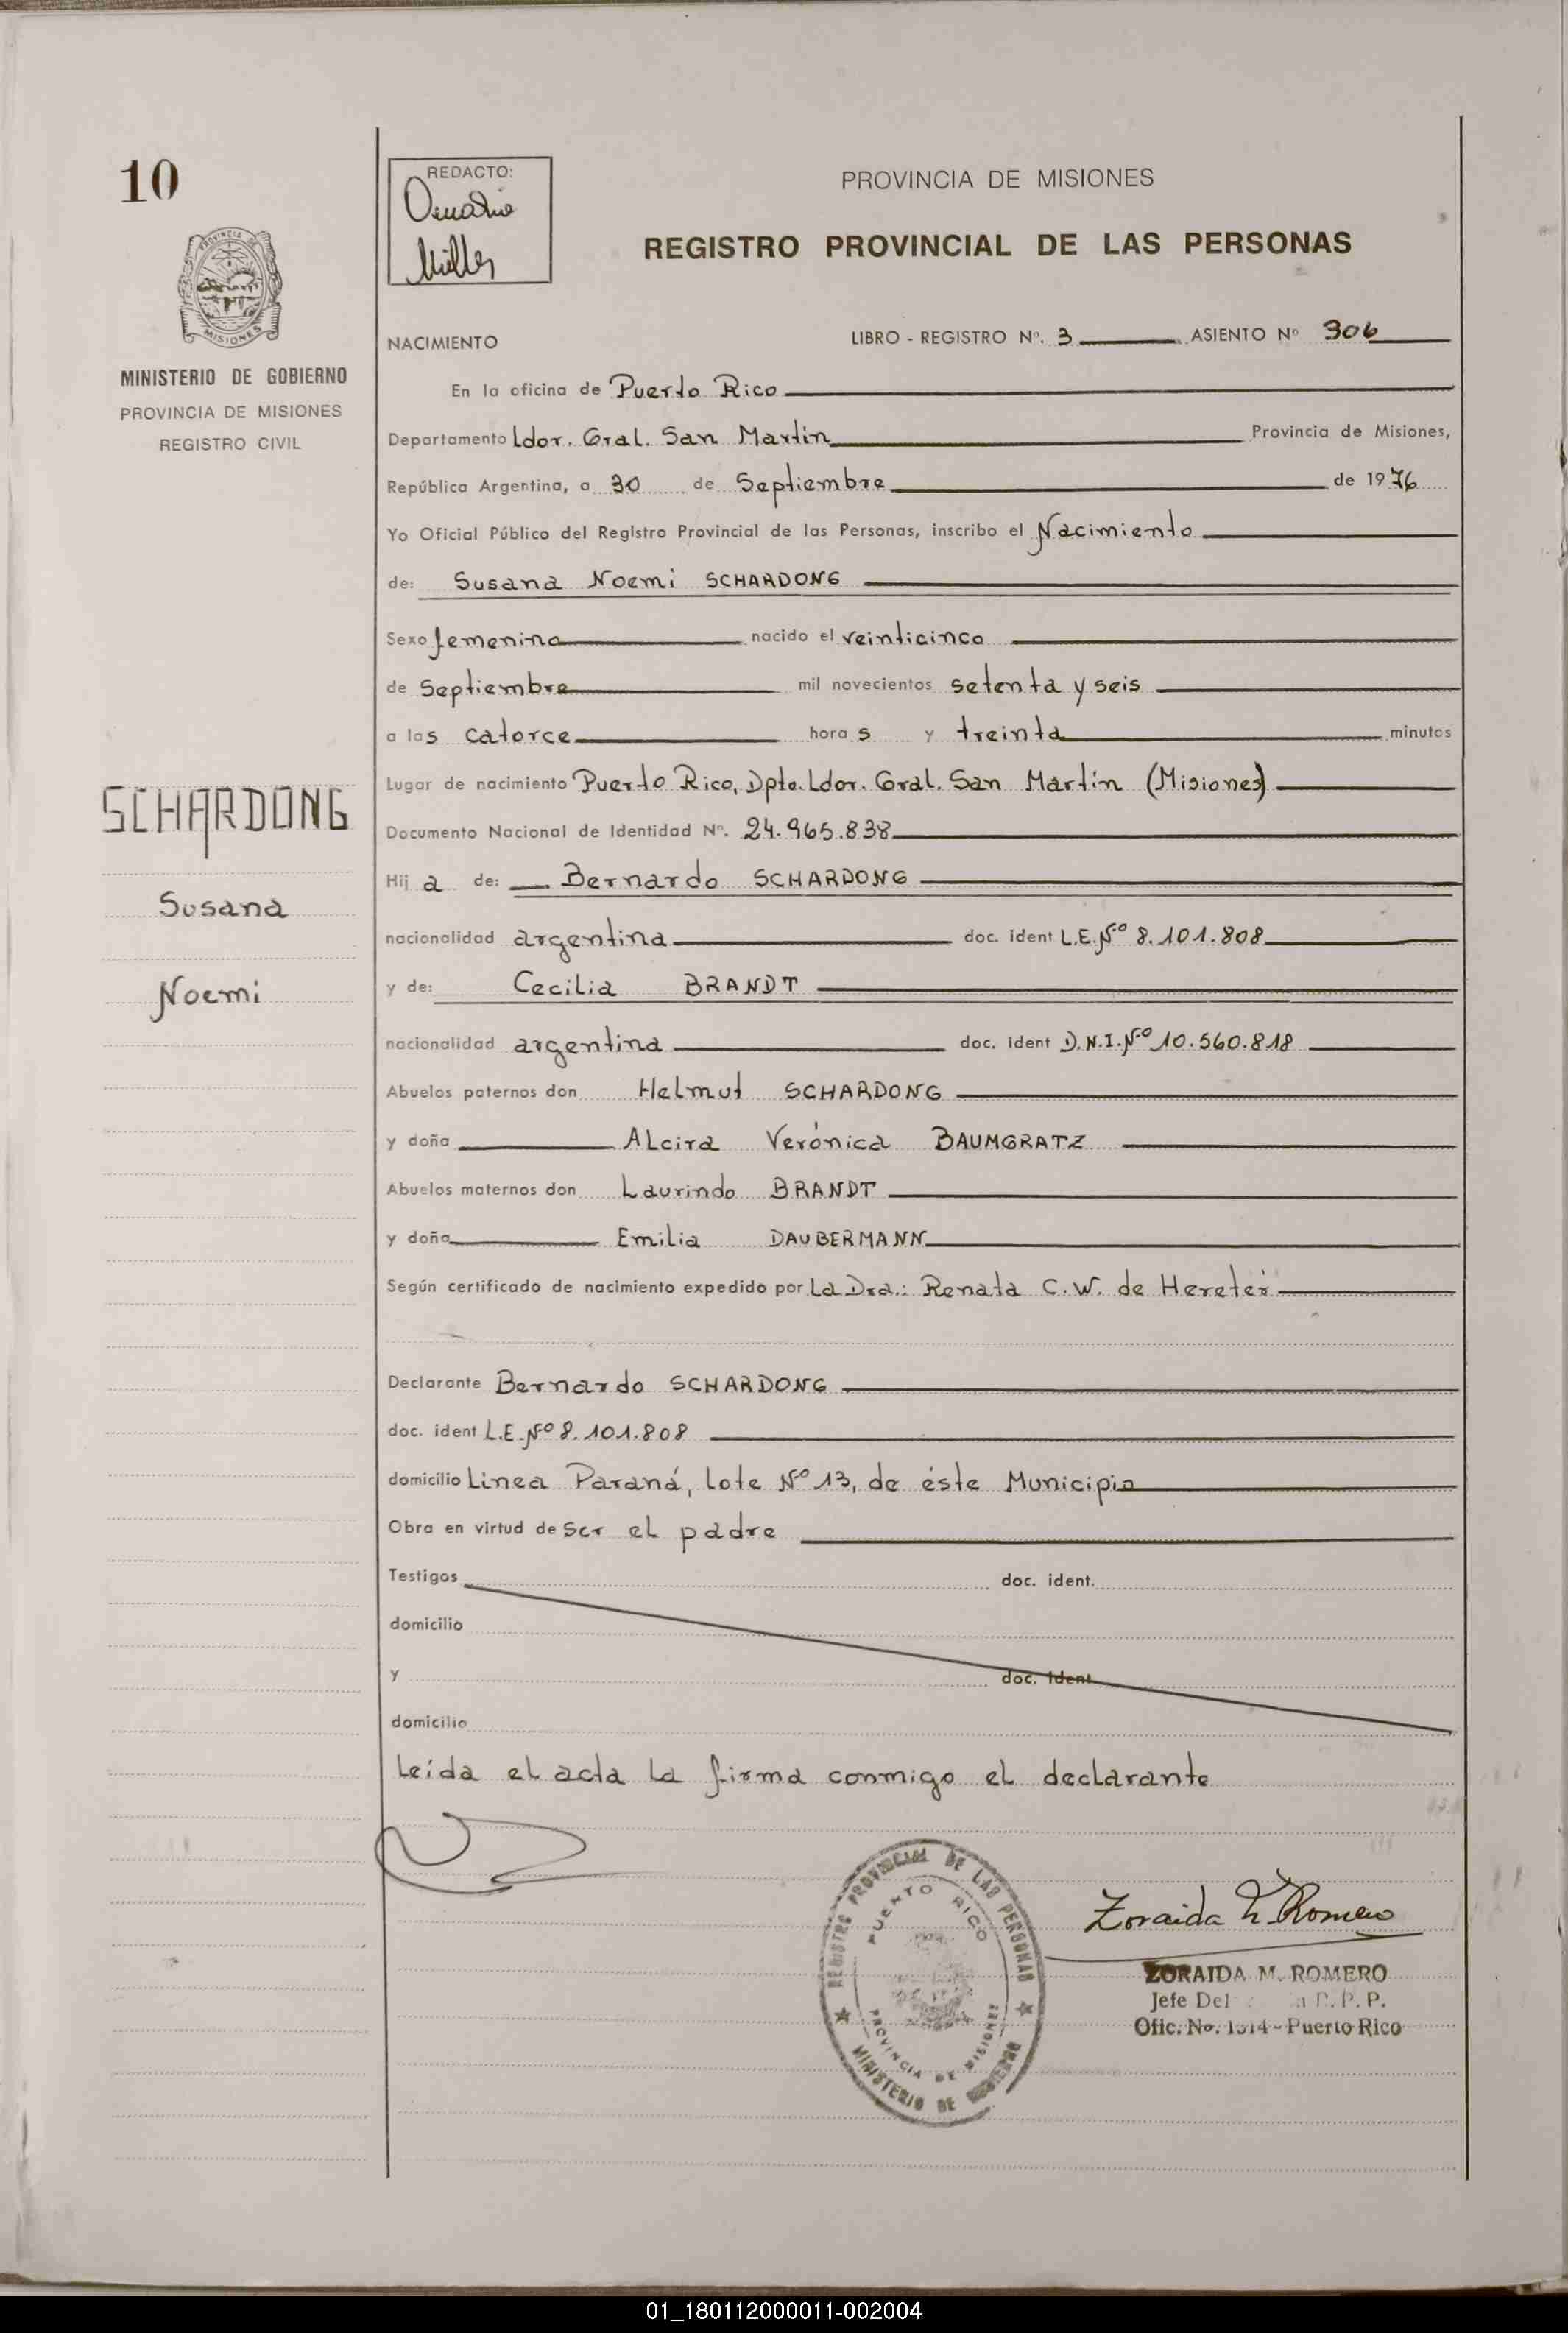 10
REDACTO:
Müller
PROVINCIA DE MISIONES
REGISTRO PROVINCIAL DE LAS PERSONAS
PROVINCIA DE
MISIONES
MINISTERIO DE GOBIERNO
PROVINCIA DE MISIONES
REGISTRO CIVIL
NACIMIENTO LIBRO - REGISTRO Nº. 3 ASIENTO Nº 306
En la oficina de Puerto Rico
Departamento Ldor. Gral. San Martín Provincia de Misiones,
República Argentina, a 30 de Septiembre de 1976
Yo Oficial Público del Registro Provincial de las Personas, inscribo el Nacimiento
de: Susana Noemi SCHARDONG
Sexo femenino nacido el veinticinco
de Septiembre mil novecientos setenta y seis
a las catorce horas y treinta minutos
Lugar de nacimiento Puerto Rico, Dpto. Ldor. Gral. San Martín (Misiones)
Documento Nacional de Identidad Nº. 24.965.838
Hija de: Bernardo SCHARDONG
nacionalidad argentina doc. ident L.E. Nº 8.101.808
y de: Cecilia BRANDT
nacionalidad argentina doc. ident D.N.I. Nº 10.560.818
Abuelos paternos don Helmut SCHARDONG
y doña ALcira Verónica BAUMGRATZ
Abuelos maternos don Laurindo BRANDT
y doña Emilia DAUBERMANN
Según certificado de nacimiento expedido por La Dra.: Renata C.W. de Hereter
Declarante Bernardo SCHARDONG
doc. ident L.E. Nº 8.101.808
domicilio Linea Paraná, lote Nº 13, de éste Municipio
Obra en virtud de ser el padre
Testigos doc. ident.
domicilio
y doc. ident
domicilio
Leída el acta la firma conmigo el declarante
SCHARDONG
Susana
Noemi
REGISTRO PROVINCIAL DE LAS PERSONAS
PUERTO RICO
PROVINCIA DE MISIONES
MINISTERIO DE GOBIERNO
Zoraida M. Romero
ZORAIDA M. ROMERO
Jefe Del P. P.
Ofic. No. 1314 - Puerto Rico
01_180112000011-002004